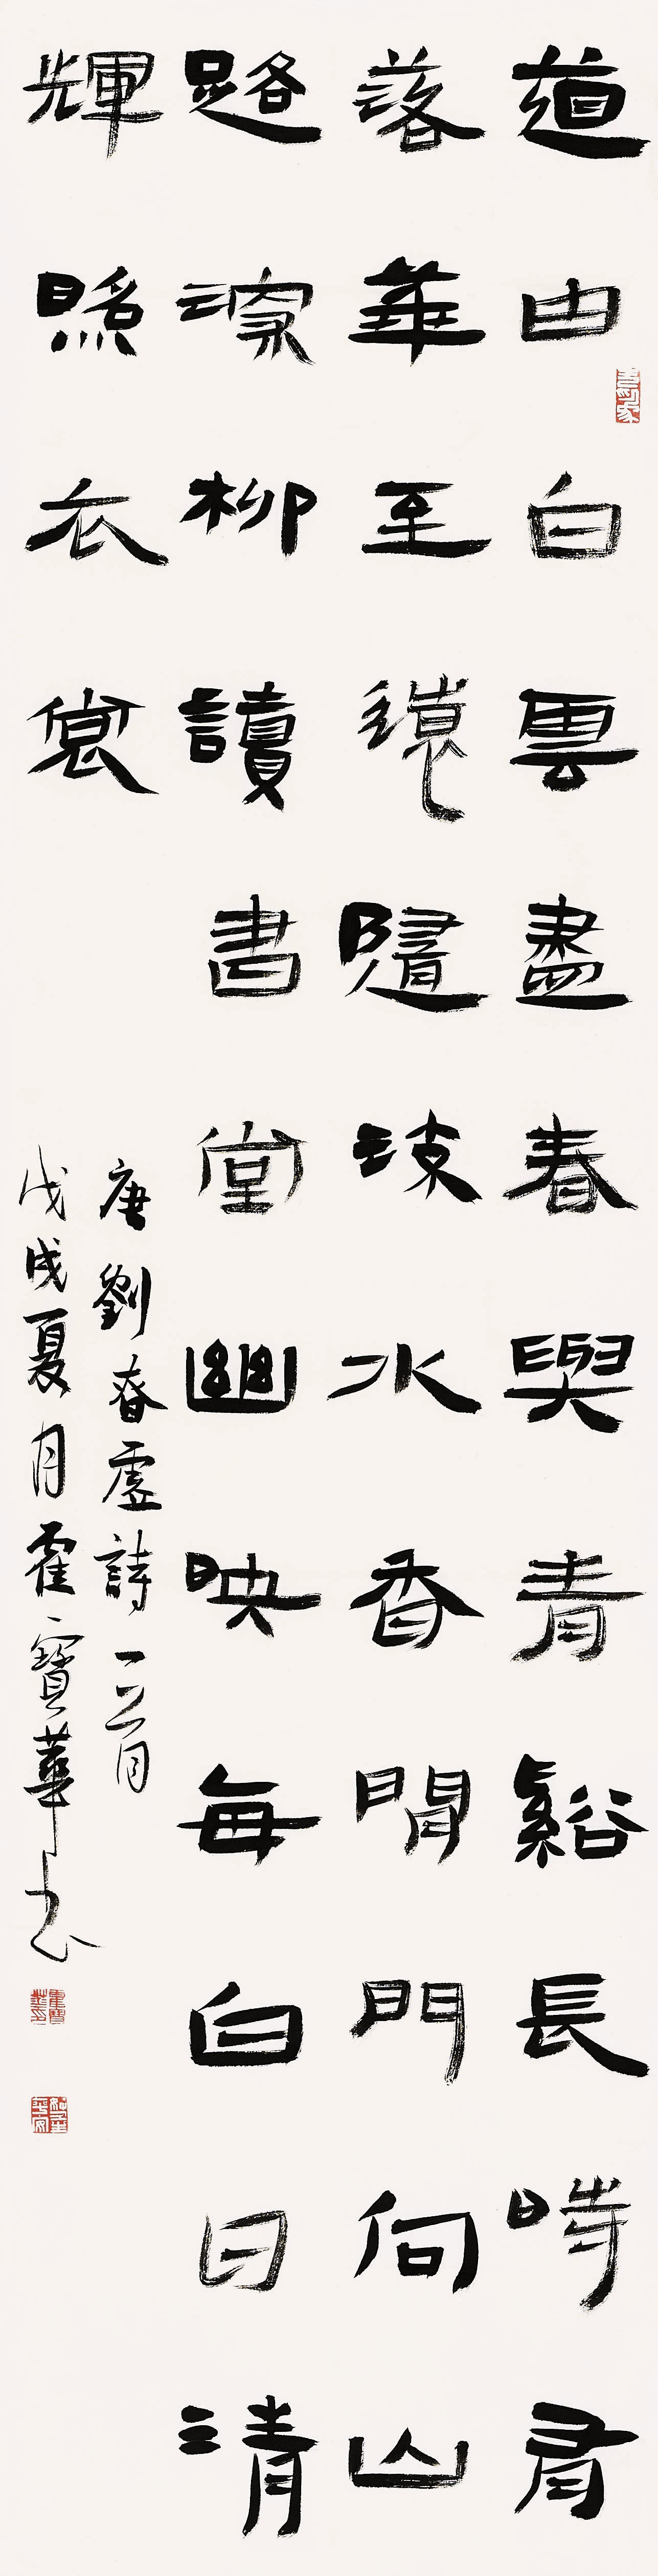 道由白雲盡春與青谿長時有
落華至遠隨流水香閒門向山
路深柳讀書堂幽映每白日清
輝照衣裳
唐劉眘虛詩一首
戊戌夏月霍寶華書